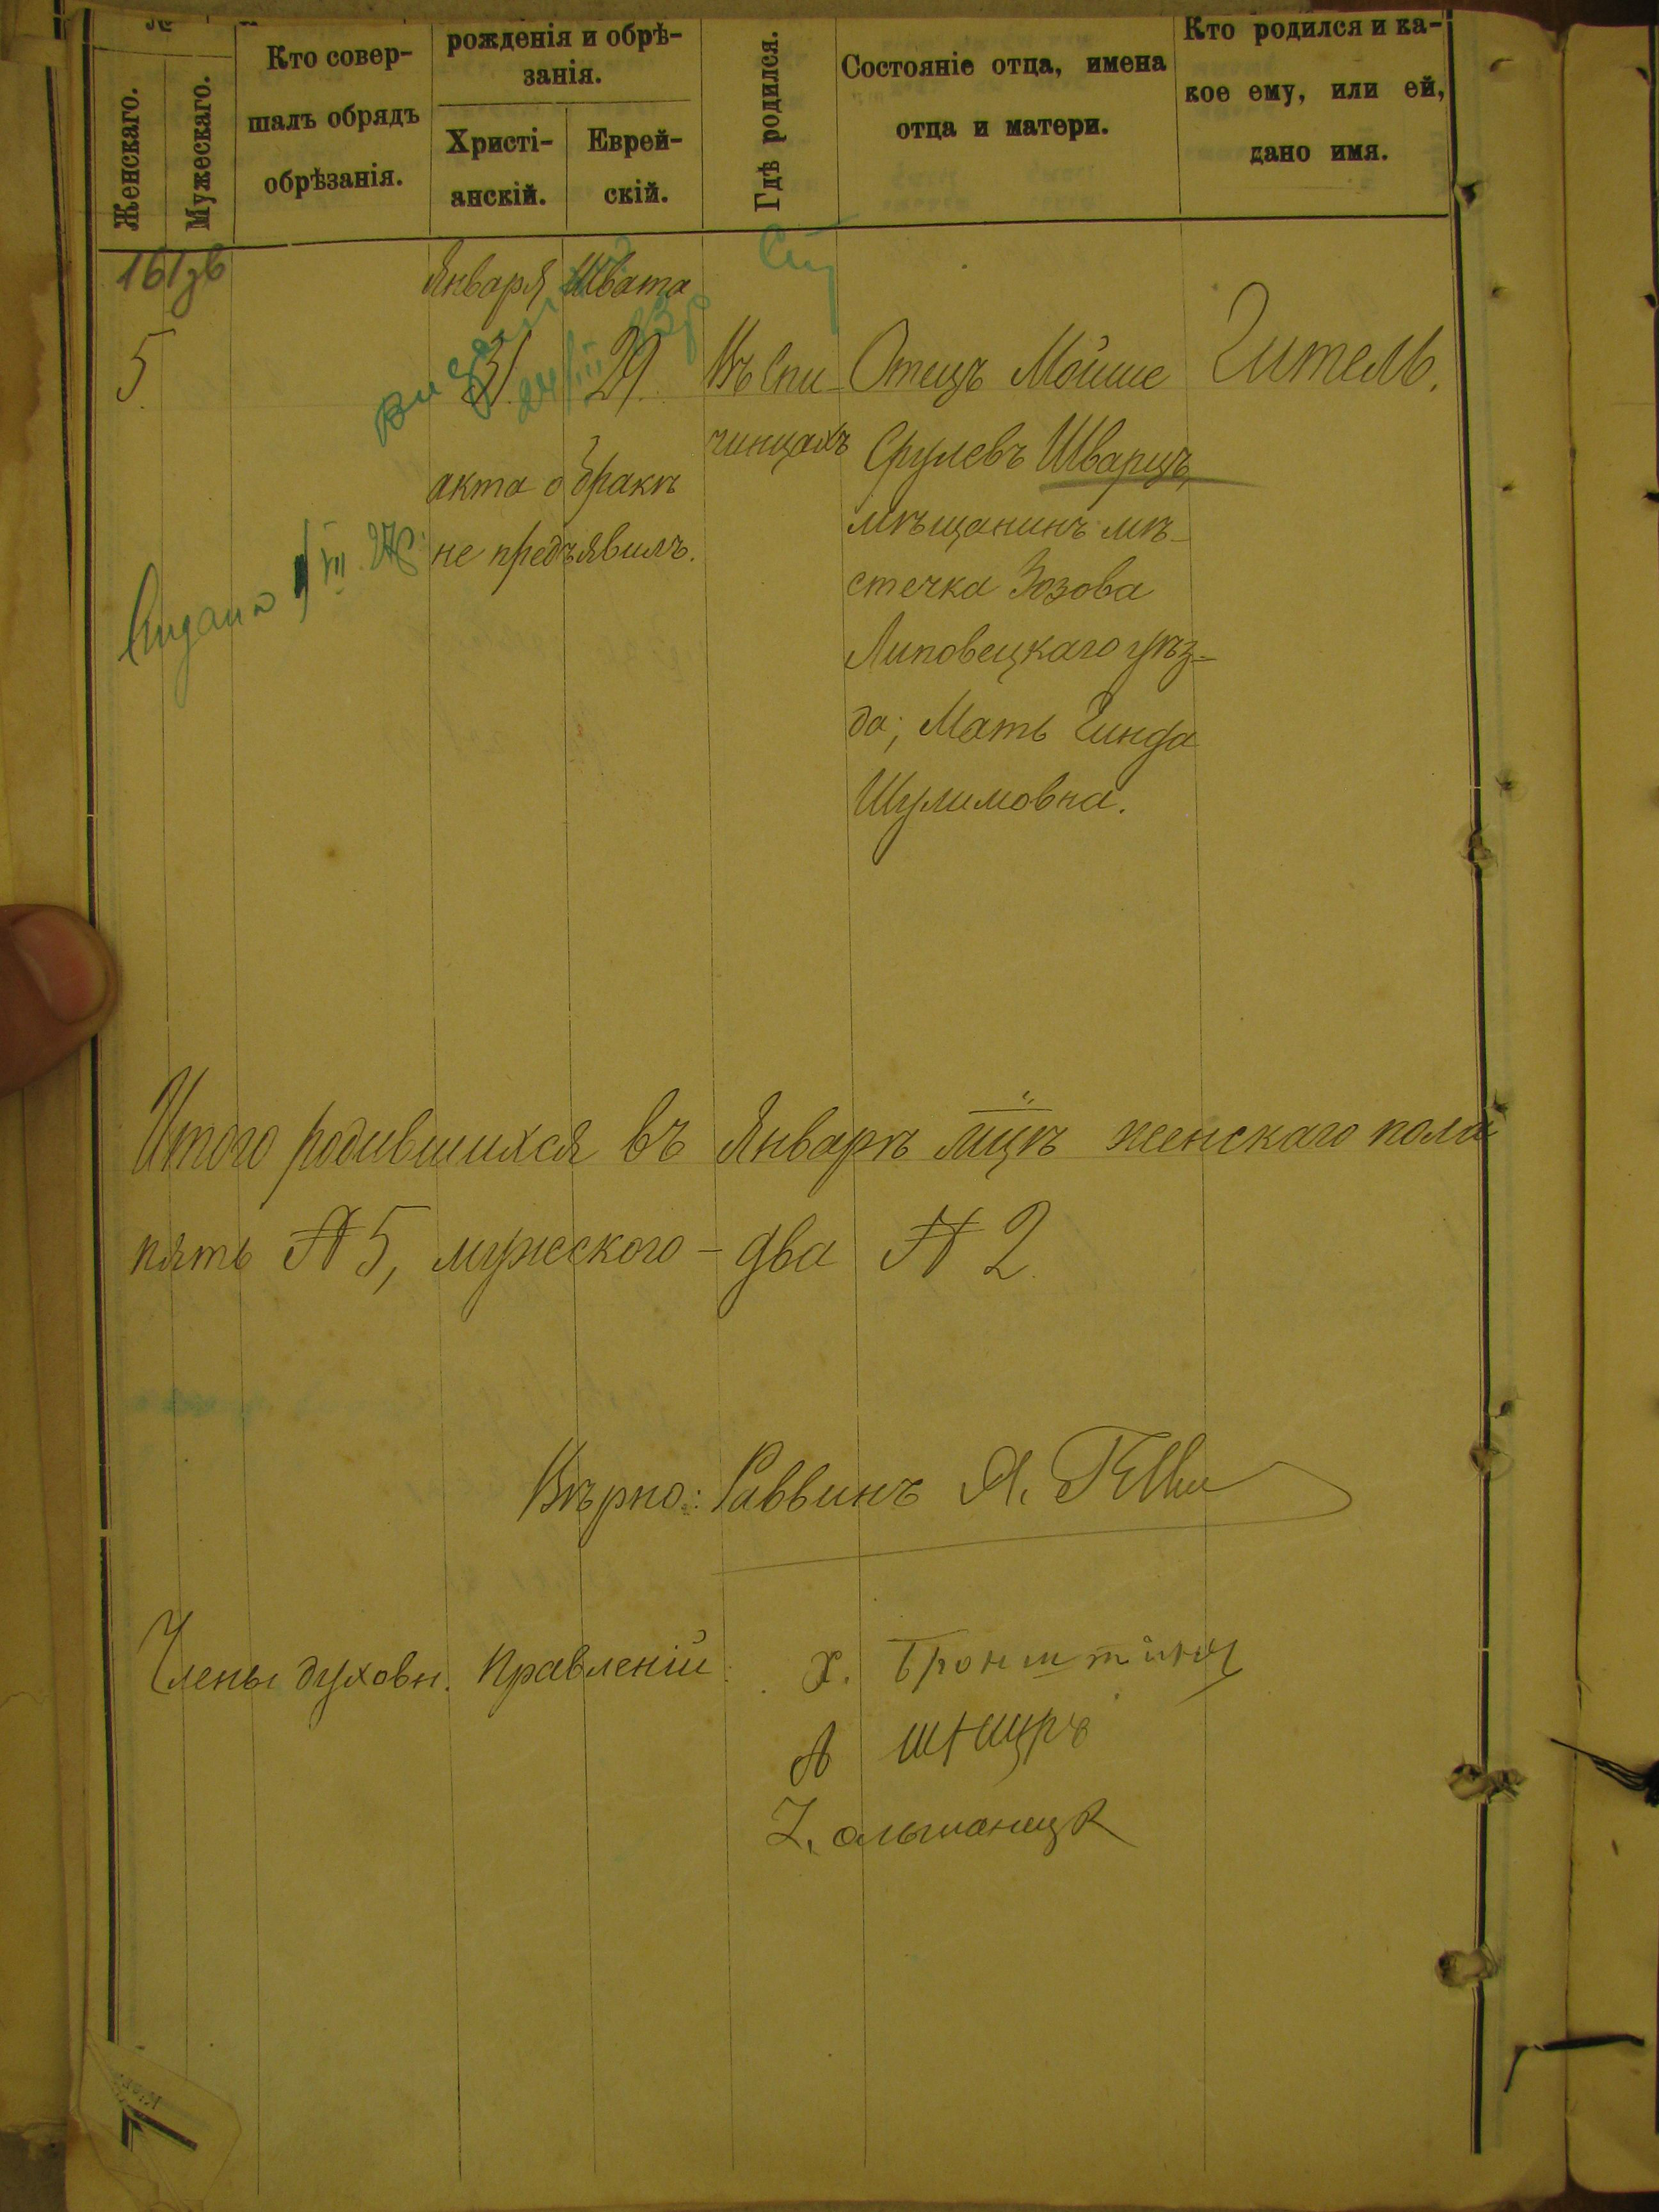 Женскаго.
Мужескаго.
Кто совер-
шалъ обрядъ
обрѣзанія.
рожденія и обрѣ-
занія.
Христі-
анскій.
Еврей-
скій.
Гдѣ родился.
Состояніе отца, имена
отца и матери.
Кто родился и ка-
кое ему, или ей,
дано имя.
Января
Швата
5
31.
29.
Въ Спи-
чинцахъ
акта о бракѣ
не предъявилъ.
Отецъ Мойше
Срулевъ Шварцъ,
мѣщанинъ мѣ-
стечка Зозова
Липовецкаго уѣз-
да; Мать Гинда
Шулимовна.
Гитель.
Итого родившихся въ Январѣ мцѣ женскаго пола
пять № 5, мужского - два № 2
Вѣрно: Раввинъ Я.
Члены духовн. Правленій:
Х. Бронштейнъ
А